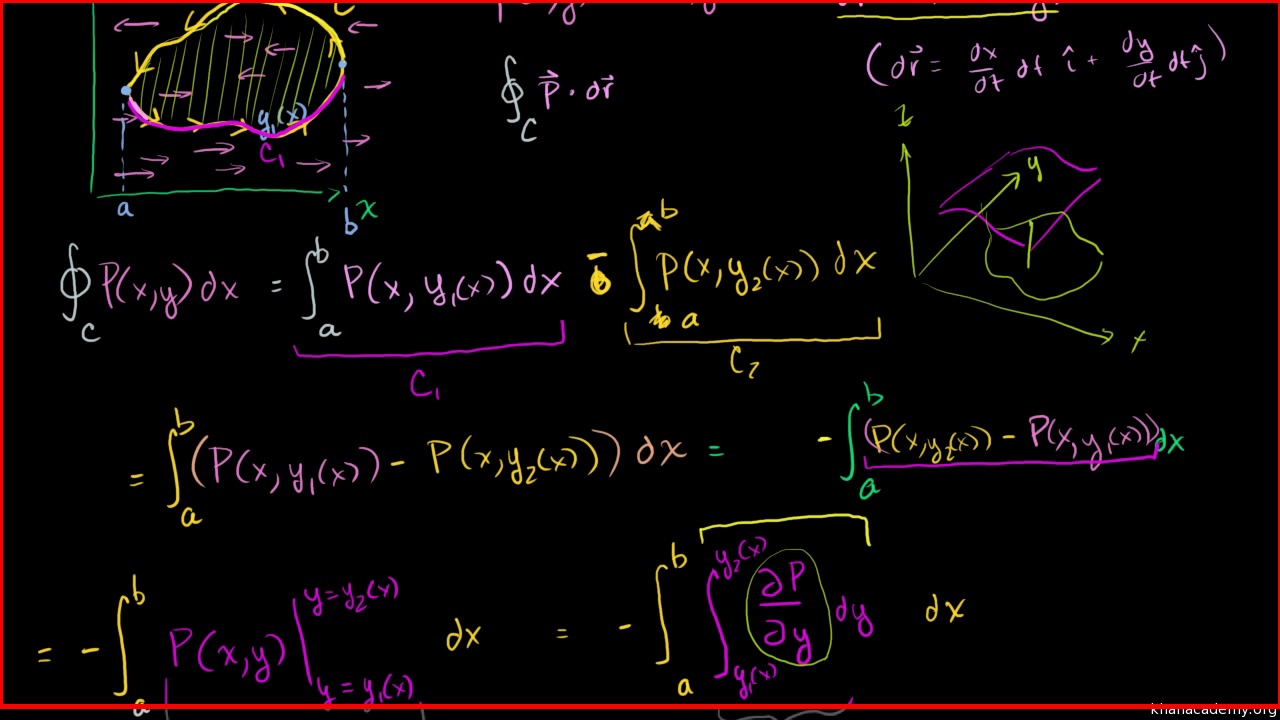 (d\vec{r} = \frac{dx}{dt} dt \hat{i} + \frac{dy}{dt} dt \hat{j})
\oint_C \vec{P} \cdot d\vec{r}
y₁(x)
C₁
a b x
z y x
\oint_C P(x,y) dx = \int_a^b P(x, y₁(x)) dx - \int_a^b P(x, y₂(x)) dx
C₁ C₂
= \int_a^b (P(x, y₁(x)) - P(x, y₂(x))) dx = - \int_a^b (P(x, y₂(x)) - P(x, y₁(x))) dx
= - \int_a^b P(x,y) |_{y = y₁(x)}^{y = y₂(x)} dx = - \int_a^b \int_{y₁(x)}^{y₂(x)} \frac{∂P}{∂y} dy dx
khanacademy.org